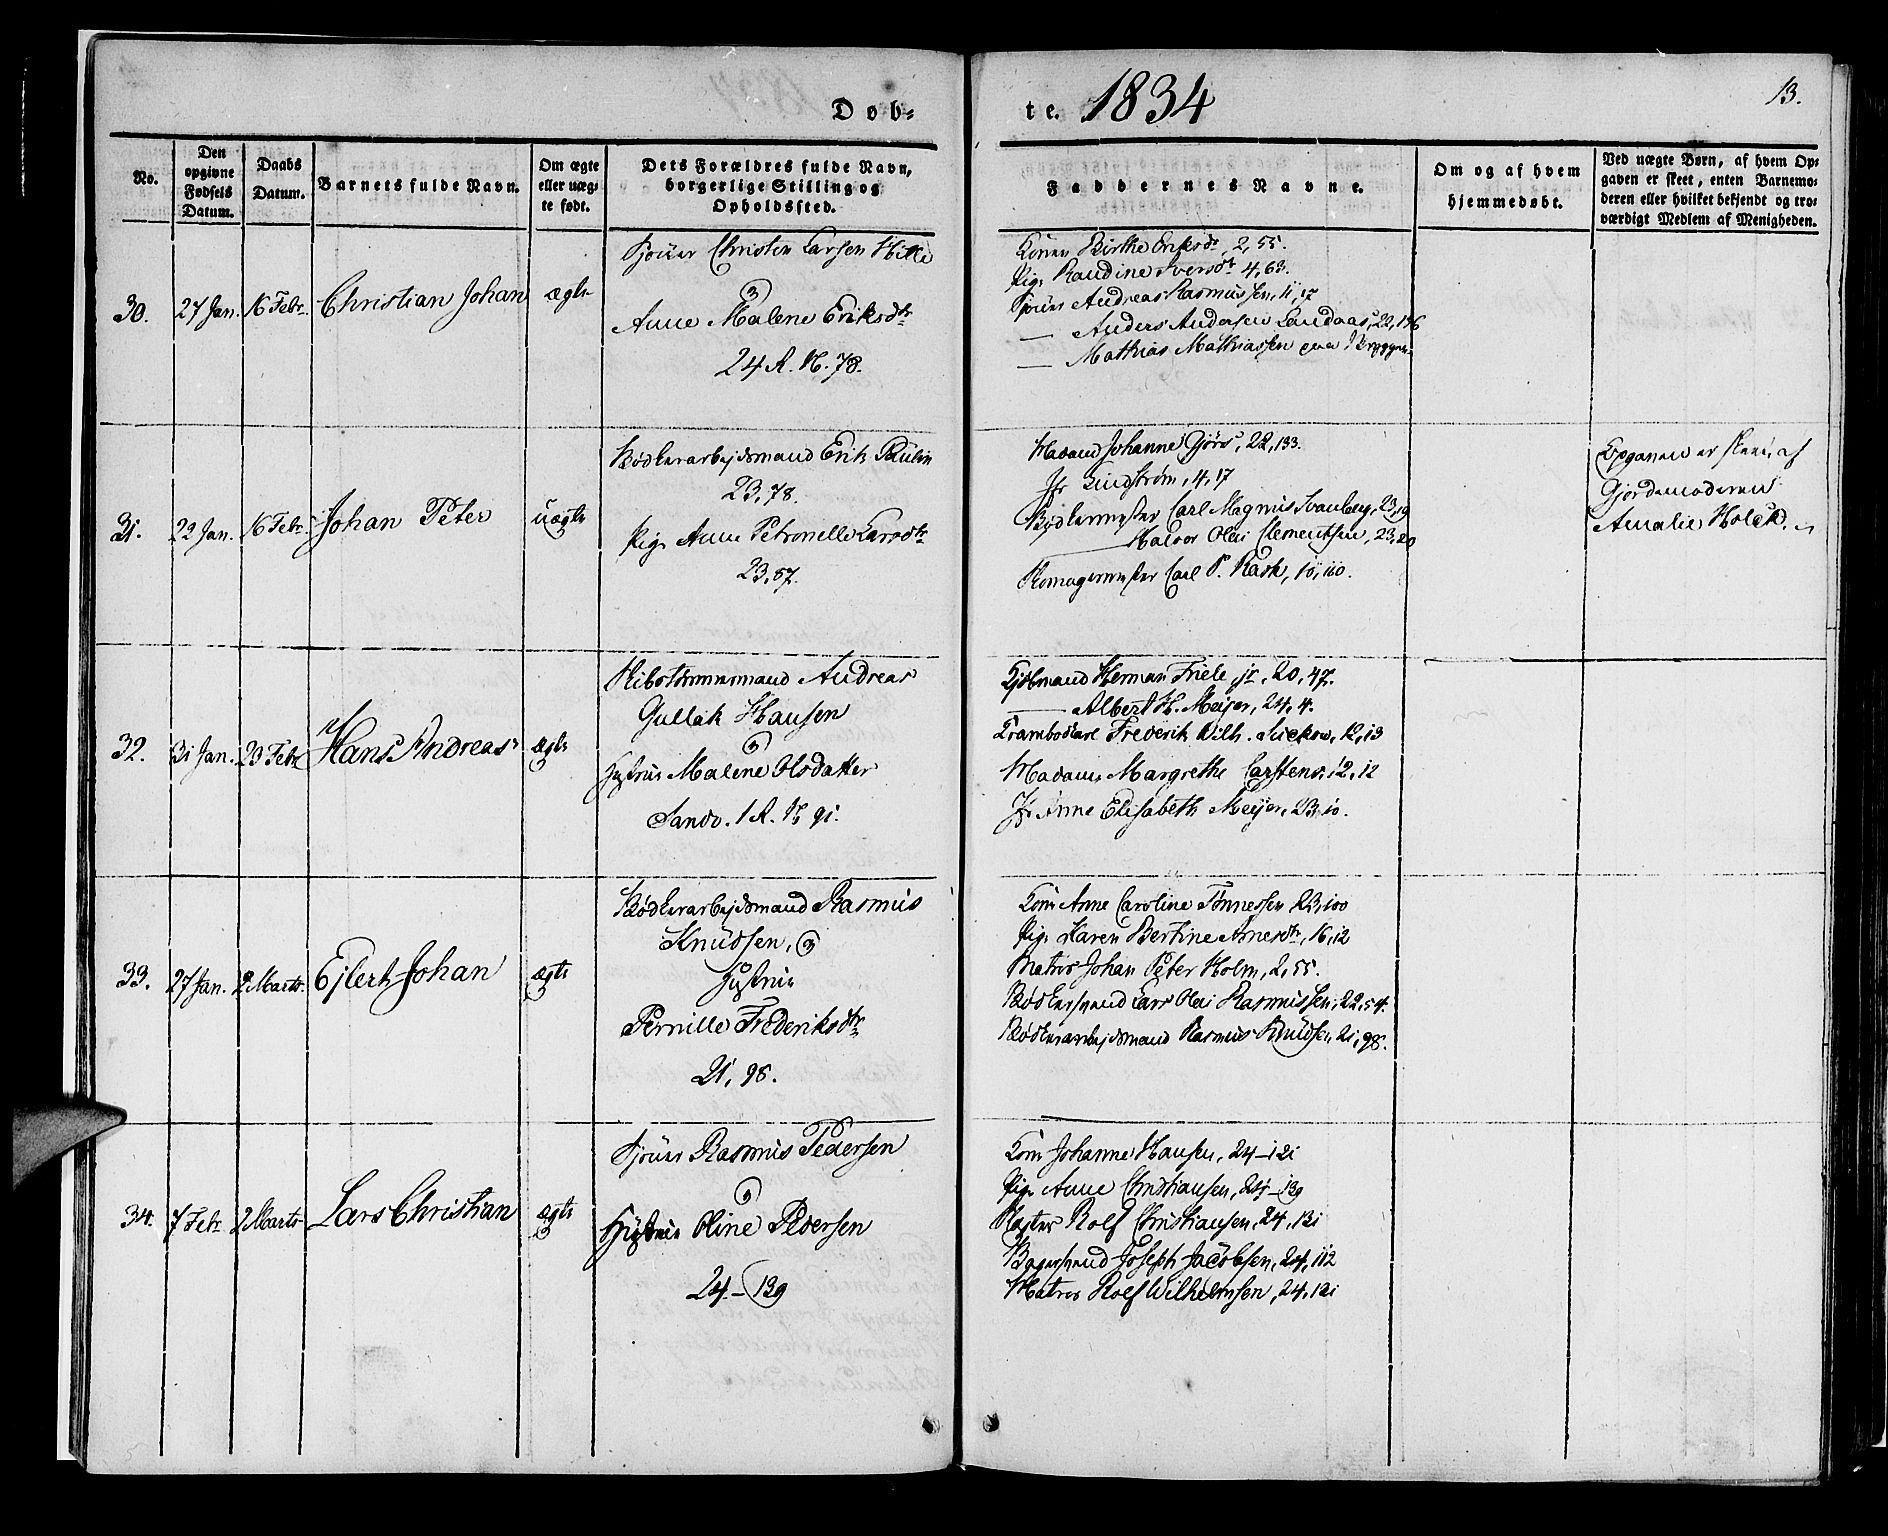 Døb-
te. 1834
13.
No.
Den
opgivne
Fødsels
Datum.
Daabs
Datum.
Barnets fulde Navn.
Om ægte
eller uæg-
te født.
Dets Forældres fulde Navn,
borgerlige Stilling og
Opholdssted.
Faddernes Navne.
Om og af hvem
hjemmedøbt.
Ved uægte Børn, af hvem Op-
gaven er skeet, enten Barnemo-
deren eller hvilket bekjendt og tro-
værdigt Medlem af Menigheden.
30.
27 Jan.
16 Febr.
Christian Johan
ægte
Christen Larsen Hille
Anne Malene Eriksdtr
24 R. N. 78.
Konen Birthe Eriksdr, 2, 55.
Pige Randine Iversdt 4, 63.
Andreas Rasmussen, 11, 17
— Anders Andersen Landaas, 22, 136
— Mathias Mathiassen paa Bryggen
31.
22 Jan.
16 Febr.
Johan Peter
uægte
Bødkerarbejdsmand Erik Paulin
23, 78.
Pige Anne Petronelle Larsdtr
23, 57.
Madam Johanne Gjørs, 22, 133.
Jfr Lindstrøm, 4, 17
Bødkermester Carl Magnus Svanberg, 23, 19
— Halvor Olai Clementsen, 23, 20
Skomagermester Carl P. Rask, 10, 110.
Opgaven er skeet af
Gjordemoderen
Amalie Holck.
32.
31 Jan.
23 Febr
Hans Andreas
ægte
Andreas
Gullak Hansen
Hustrue Malene Olsdatter
Sandv. 1 R. N 91.
Kjøbmand Herman Friele jr, 20, 47.
— Albert H. Meijer, 24, 4.
Krambodkarl Frederik Wilh. Suckow, 12, 13
Madame Margrethe Carstens, 12, 12
Jfr Anne Elisabeth Meijer, 23, 10.
33.
27 Jan.
2 Marts.
Ejlert Johan
ægte
Bødkerarbejdsmand Rasmus
Knudsen,
Hustrue
Pernille Frederiksdtr
21, 98.
Kone Anne Caroline Tønnessen 23, 100
Pige Karen Bertine Arnesdtr, 16, 12
Matros Johan Peter Holm, 2, 55.
Bødkersvend Lars Olai Rasmussen, 22, 54.
Bødkerarbejdsmand Rasmus Knudsen, 21, 98.
34.
7 Febr.
2 Marts
Lars Christian
ægte
Rasmus Pedersen
Hustrue Oline Pedersen
24 – 139
Kone Johanne Hansen, 24 – 121
Pige Anne Christiansen, 24 – 139
Rolf Christiansen, 24, 121
Bagersvend Joseph Jacobsen, 24, 112
Matros Rolf Wilhelmsen, 24, 121